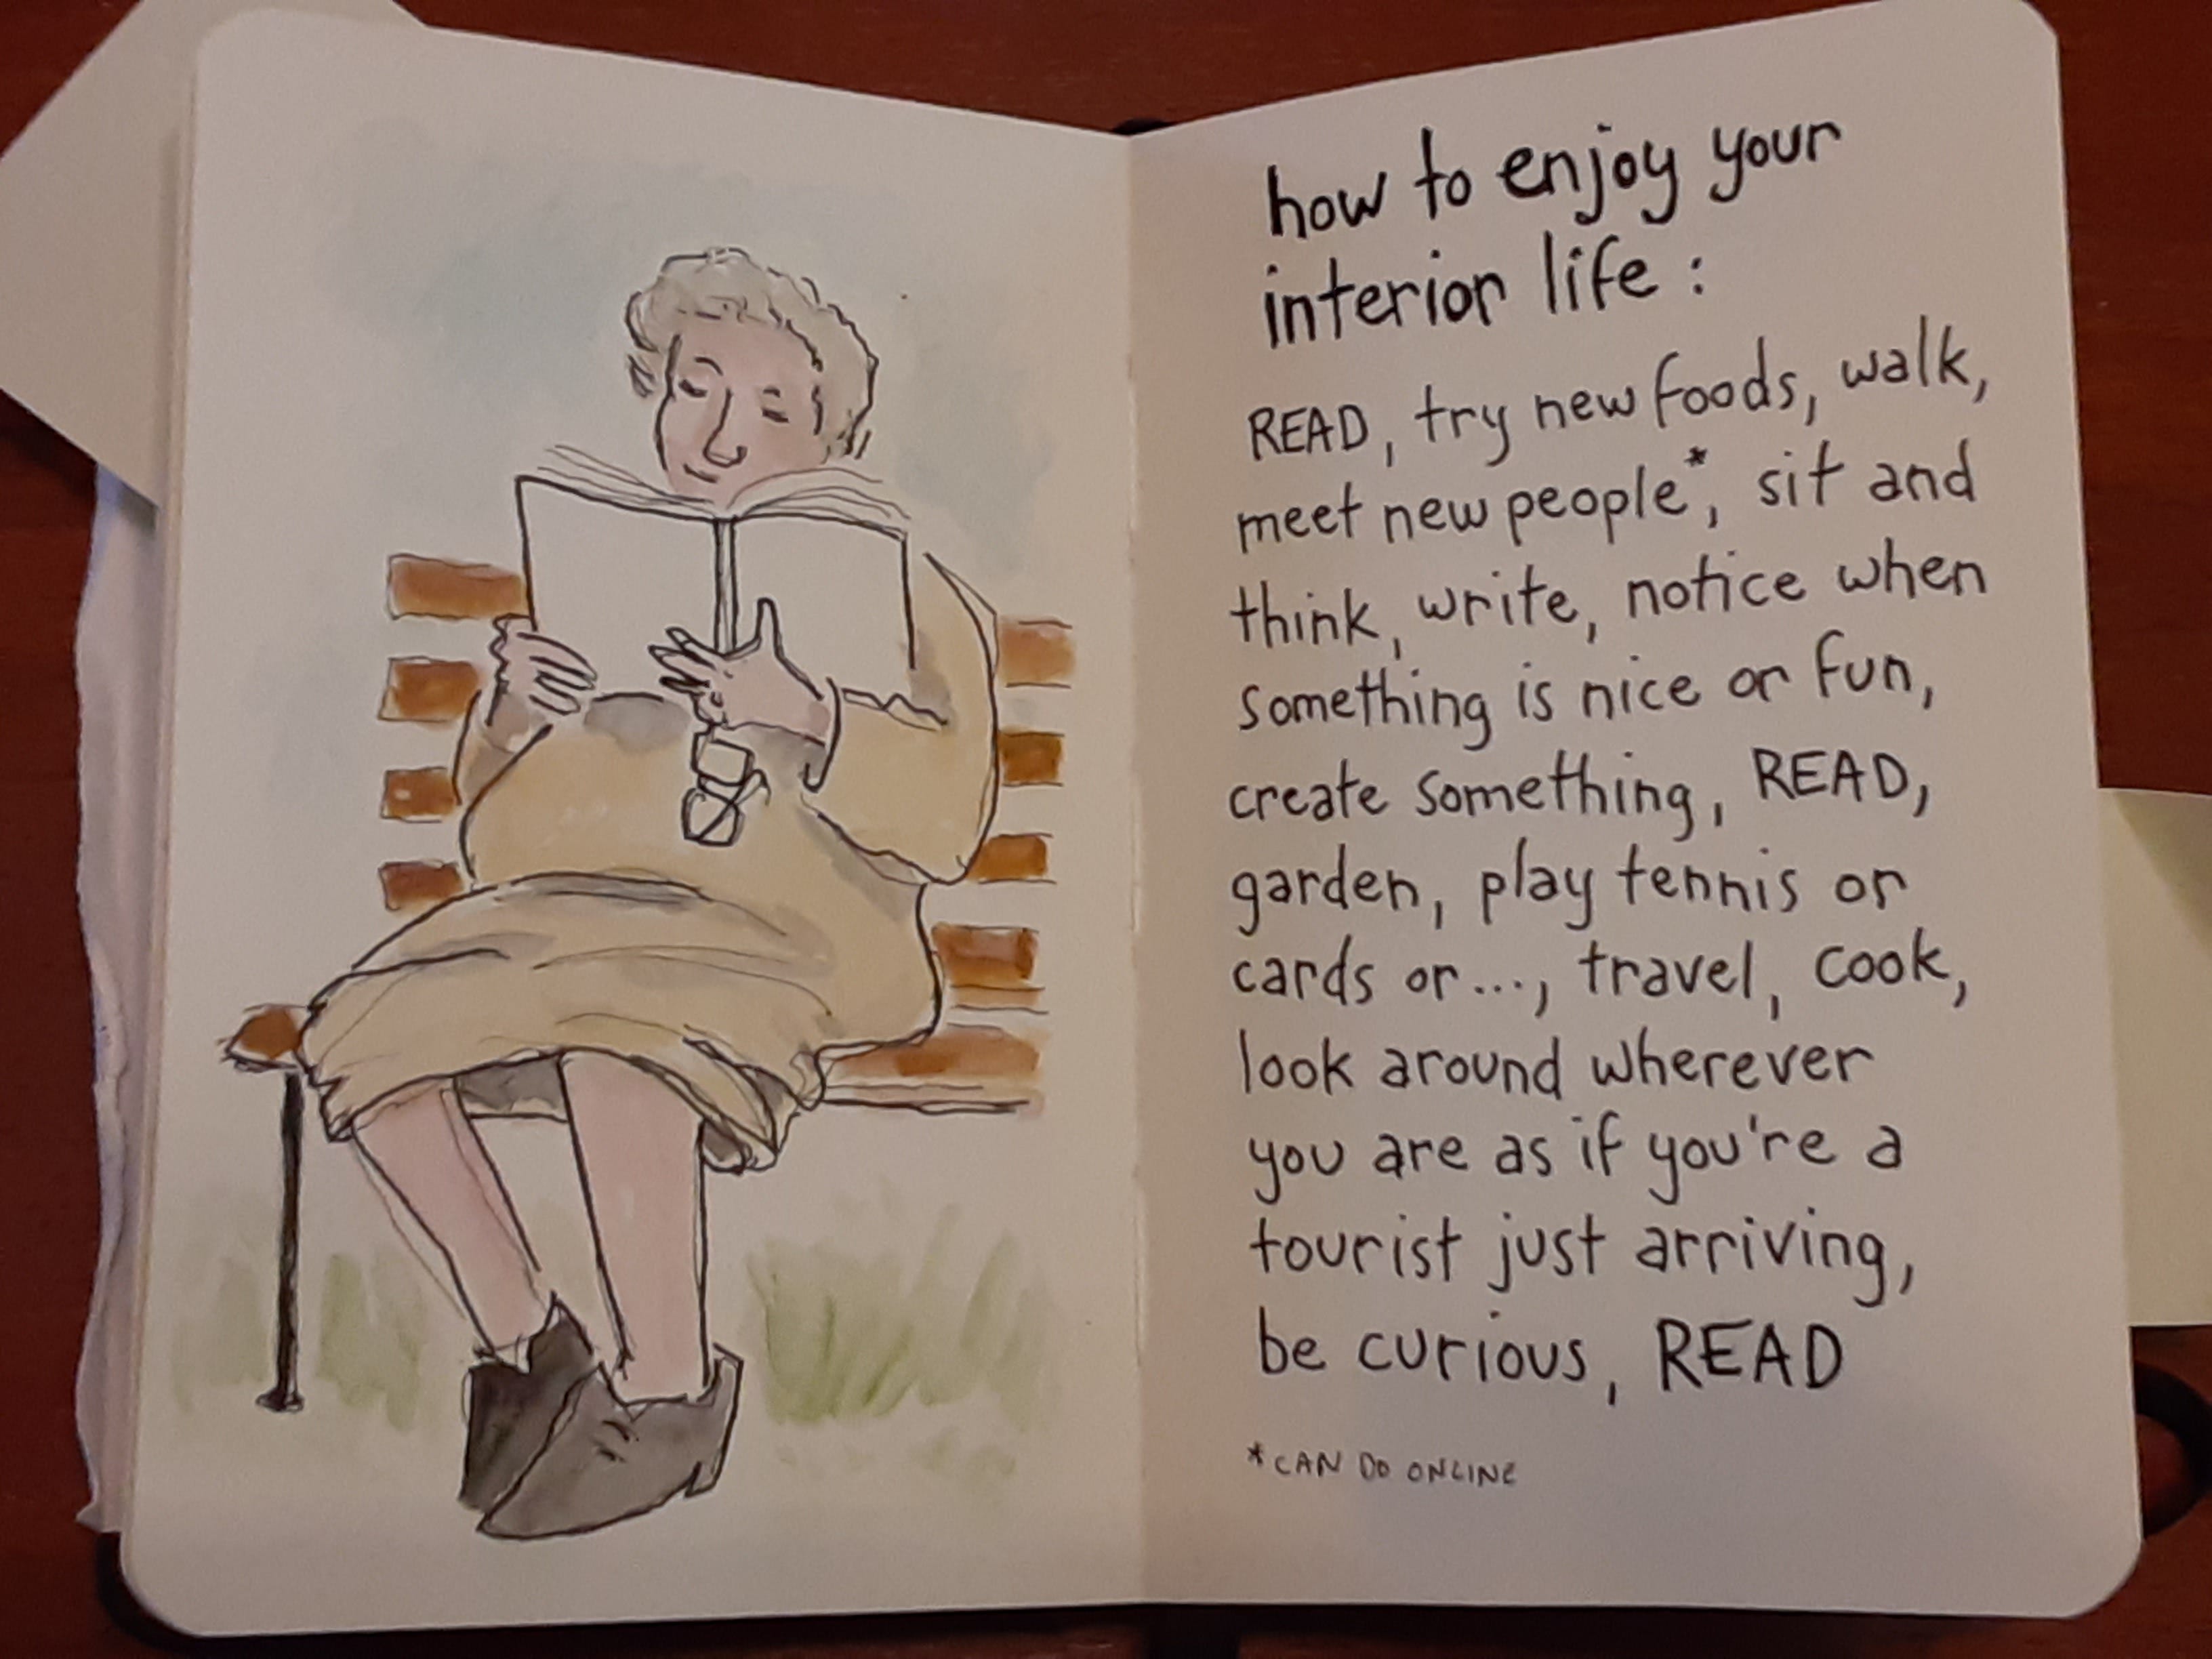 how to enjoy your
interior life :
READ, try new foods, walk,
meet new people*, sit and
think, write, notice when
something is nice or fun,
create something, READ,
garden, play tennis or
cards or ..., travel, cook,
look around wherever
you are as if you're a
tourist just arriving,
be curious, READ
*CAN DO ONLINE